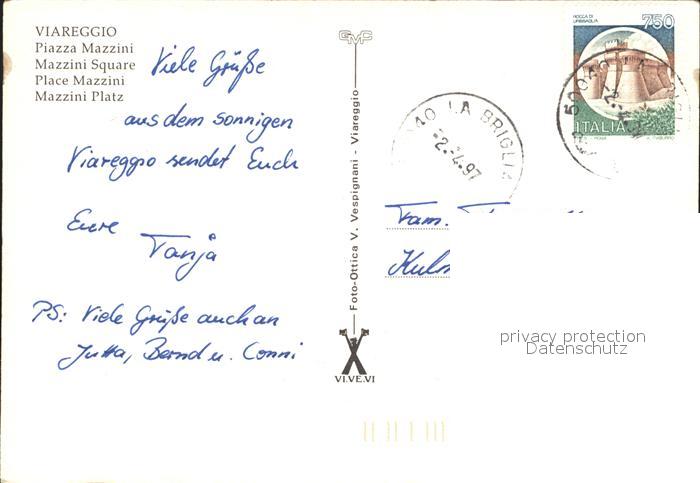 VIAREGGIO
Piazza Mazzini
Mazzini Square
Place Mazzini
Mazzini Platz
Viele Grüße
aus dem sonnigen
Viareggio sendet Euch
Eure
Tanja
PS: Viele Grüße auch an
Jutta, Bernd u. Conni
GMC
Foto-Ottica V. Vespignani - Viareggio
VI.VE.VI
LA BRIGLIA
-2.-4.97
ROCCA DI
URBISAGLIA
750
ITALIA
Fam.
privacy protection
Datenschutz